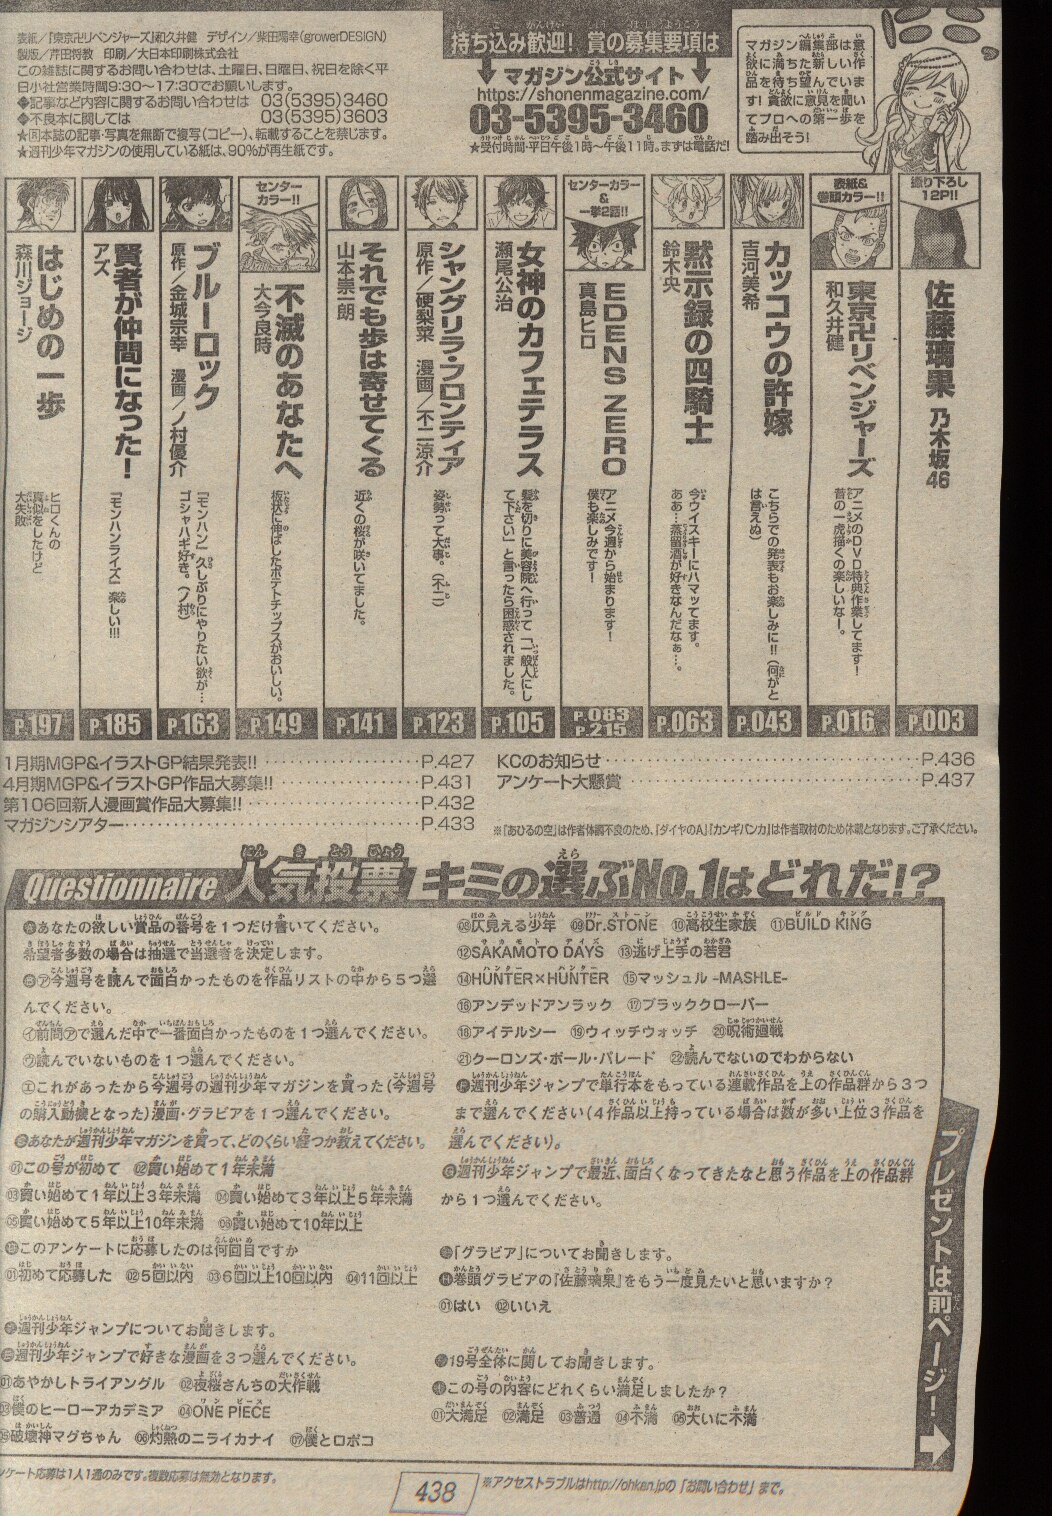 表紙／『東京卍リベンジャーズ』和久井健　デザイン／柴田陽幸(growerDESIGN)
製版／芹田将教　印刷／大日本印刷株式会社
この雑誌に関するお問い合わせは、土曜日、日曜日、祝日を除く平
日小社営業時間9:30〜17:30でお願いします。
◆記事など内容に関するお問い合わせは　03(5395)3460
◆不良本に関しては　03(5395)3603
★Ⓡ本誌の記事・写真を無断で複写(コピー)、転載することを禁じます。
★週刊少年マガジンの使用している紙は、90%が再生紙です。
持ち込み歓迎！ 賞の募集要項は
マガジン公式サイト
https://shonenmagazine.com/
03-5395-3460
★受付時間・平日午後1時〜午後11時。まずは電話だ！
マガジン編集部は意
欲に満ちた新しい作
品を待ち望んでいま
す！貪欲に意見を聞い
てプロへの第一歩を
踏み出そう！
撮り下ろし
12P!!
佐藤璃果 乃木坂46
P.003
表紙&
巻頭カラー!!
東京卍リベンジャーズ
和久井健
アニメのDVD特典作業してます！
昔の一虎描くの楽しいなー。
P.016
カッコウの許嫁
吉河美希
こちらでの発表もお楽しみに!!(何がと
は言えぬ)
P.043
黙示録の四騎士
鈴木央
今ウイスキーにハマッてます。
ああ…蒸留酒が好きなんだなぁ…。
P.063
センターカラー
&
一挙2話!!
EDENS ZERO
真島ヒロ
アニメ今週から始まります！
僕も楽しみです！
P.083
P.215
女神のカフェテラス
瀬尾公治
髪を切りに美容院へ行って「一般人にし
て下さい」と言ったら困惑されました。
P.105
シャングリラ・フロンティア
原作／硬梨菜　漫画／不二涼介
姿勢って大事。(不二)
P.123
それでも歩は寄せてくる
山本崇一朗
近くの桜が咲いてました。
P.141
センター
カラー!!
不滅のあなたへ
大今良時
板状に伸ばしたポテトチップスがおいしい。
P.149
ブルーロック
原作／金城宗幸　漫画／ノ村優介
『モンハン』久しぶりにやりたい欲が…
ゴシャハギ好き。(ノ村)
P.163
賢者が仲間になった！
アズ
『モンハンライズ』楽しい!!!
P.185
はじめの一歩
森川ジョージ
ヒロくんの
真似をしたけど
大失敗
P.197
1月期MGP&イラストGP結果発表!!…P.427
4月期MGP&イラストGP作品大募集!!…P.431
第106回新人漫画賞作品大募集!!…P.432
マガジンシアター…P.433
KCのお知らせ…P.436
アンケート大懸賞…P.437
※『あひるの空』は作者体調不良のため、『ダイヤのA』『カンギバンカ』は作者取材のため休載となります。ご了承ください。
Questionnaire 人気投票 キミの選ぶNo.1はどれだ!?
あなたの欲しい賞品の番号を1つだけ書いてください。
希望者多数の場合は抽選で当選者を決定します。
㋐今週号を読んで面白かったものを作品リストの中から5つ選
んでください。
㋑前問㋐で選んだ中で一番面白かったものを1つ選んでください。
㋒読んでいないものを1つ選んでください。
㋓これがあったから今週号の週刊少年マガジンを買った(今週号
の購入動機となった)漫画・グラビアを1つ選んでください。
あなたが週刊少年マガジンを買って、どのくらい経つか教えてください。
01この号が初めて　02買い始めて1年未満
03買い始めて1年以上3年未満　04買い始めて3年以上5年未満
05買い始めて5年以上10年未満　06買い始めて10年以上
このアンケートに応募したのは何回目ですか
01初めて応募した　02 5回以内　03 6回以上10回以内　04 11回以上
週刊少年ジャンプについてお聞きします。
週刊少年ジャンプで好きな漫画を3つ選んでください。
01あやかしトライアングル　02夜桜さんちの大作戦
03僕のヒーローアカデミア　04ONE PIECE
05破壊神マグちゃん　06灼熱のニライカナイ　07僕とロボコ
08仄見える少年　09Dr.STONE　10高校生家族　11BUILD KING
12SAKAMOTO DAYS　13逃げ上手の若君
14HUNTER×HUNTER　15マッシュル -MASHLE-
16アンデッドアンラック　17ブラッククローバー
18アイテルシー　19ウィッチウォッチ　20呪術廻戦
21クーロンズ・ボール・パレード　22読んでないのでわからない
週刊少年ジャンプで単行本をもっている連載作品を上の作品群から3つ
まで選んでください(4作品以上持っている場合は数が多い上位3作品を
選んでください)。
週刊少年ジャンプで最近、面白くなってきたなと思う作品を上の作品群
から1つ選んでください。
「グラビア」についてお聞きします。
巻頭グラビアの『佐藤璃果』をもう一度見たいと思いますか？
01はい　02いいえ
19号全体に関してお聞きします。
この号の内容にどれくらい満足しましたか？
01大満足　02満足　03普通　04不満　05大いに不満
プレゼントは前ページ！
ンケート応募は1人1通のみです。複数応募は無効となります。
438
※アクセストラブルはhttp://ohken.jpの「お問い合わせ」まで。